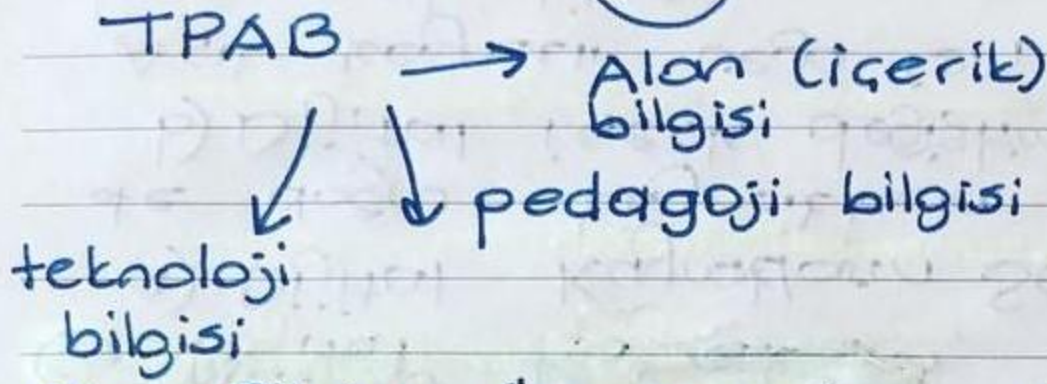 TPAB
Alan (içerik)
bilgisi
pedagoji bilgisi
teknoloji
bilgisi